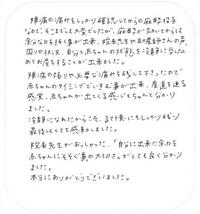 陣痛の痛みをしっかり確認してからの麻酔投与
なので、そこまでは大変でしたが、麻酔が効いてからは
余分な力をぬく事が出来、院長先生や助産師さんの声、
周りの状況、自分と赤ちゃんの状態を冷静に感じたた
めてお産をすることが出来ました。
陣痛の張りや必要な痛みも残して下さったので
赤ちゃんのタイミングでいきむ事が出来、産道を通る
感覚、赤ちゃんが出てくる感じもちゃんと分かり
ました。
冷静になれたからこそ、まだ体にもしっかり残り
最後にとても感動しました。
院長先生がおっしゃった、「自分に出来る余力を
赤ちゃんにそそぐ事の大切さ」がとても良く分かり
ました。
本当にありがとうございました。